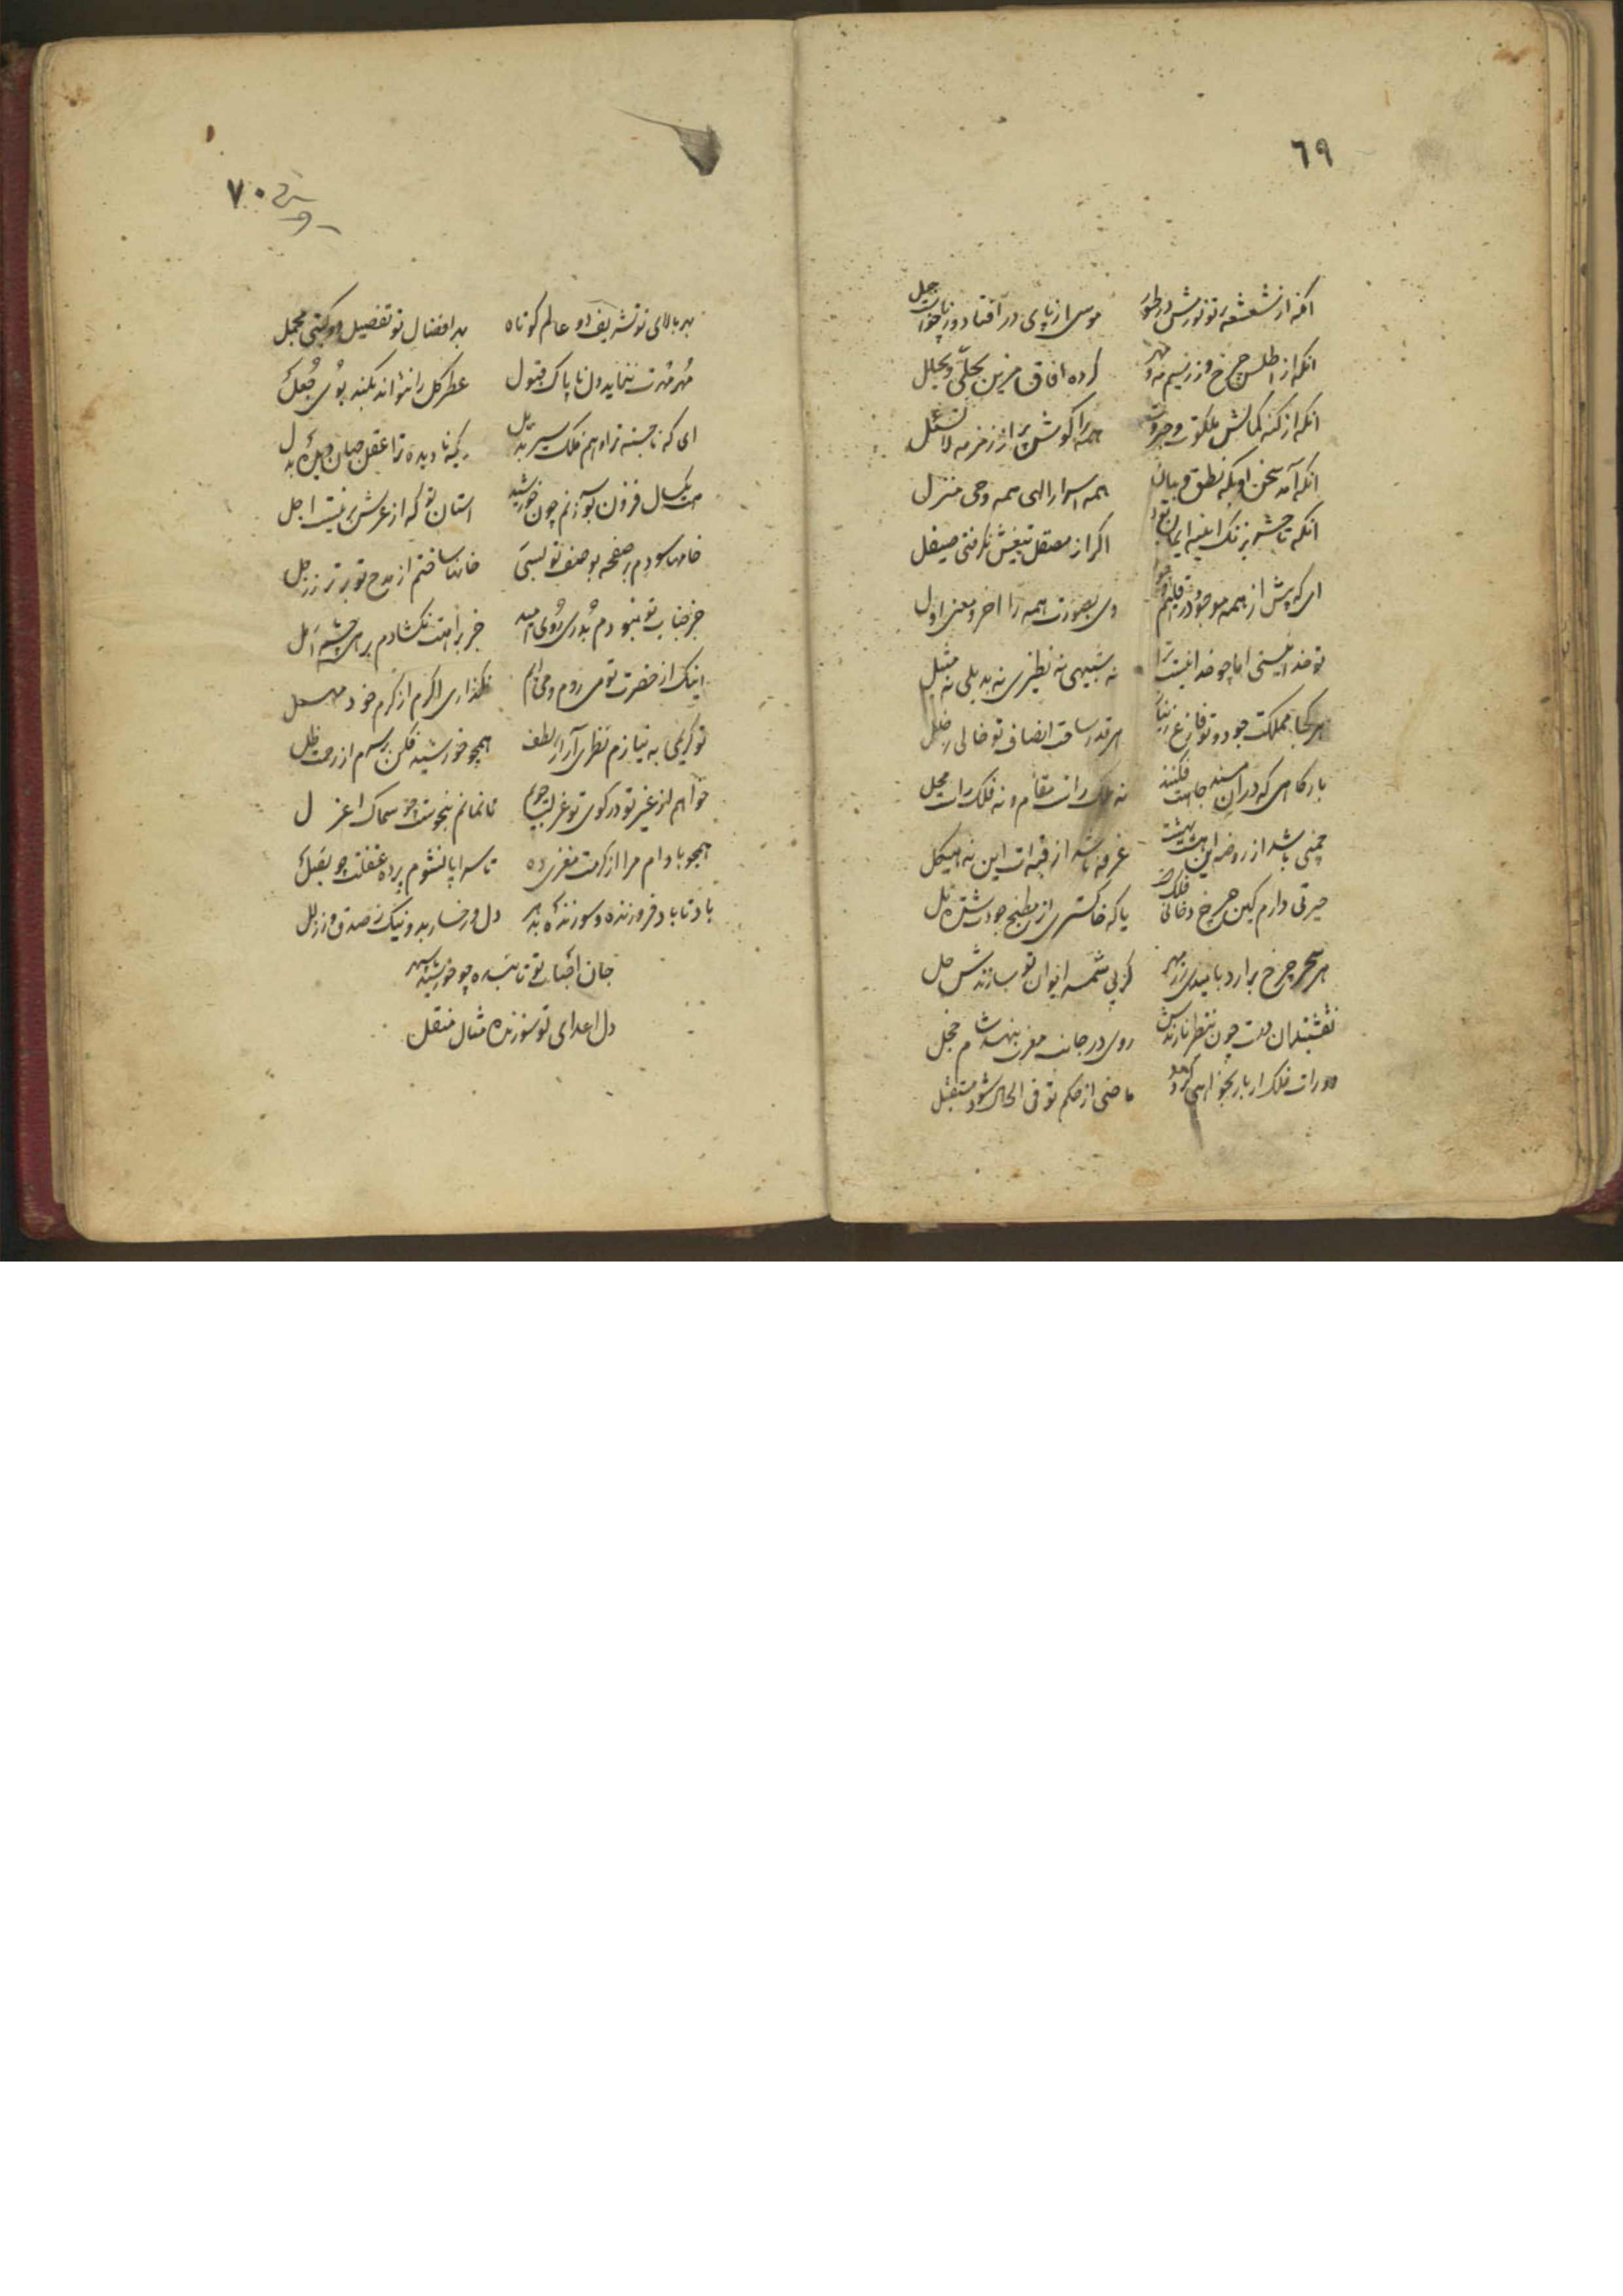 ٦٩
انکه از شعشعه پرتو نورش در طور
موسی از پای در افتاد و ز جا خواست جبل
انکه از اطلس چرخ و زر و سیم مه و مهر
کرده افاق مزین بحلی و بحلل
انکه از کنه کمالش ملکوت و جبروت
همه را کوش پر از زمزمه لا تسئل
انکه آمد سخن او بکه نطق و بیان
همه اسرار الهی همه وحی منزل
انکه تا حشر بزنک اینه ایمان بود
اگر از مصقل تیغش نگرفتی صیقل
ای که پیش از همه موجود در قلیم
وی بصورت همه را اخر و معنی اول
تو خدا نیستی اما چو خدا نیست ترا
نه شبیهی نه نظیری نه بدیلی نه مثل
هر کجا مملکت جود تو فارغ ز نیاز
هر قدر ساحت انصاف تو خالی ز خلل
بارکاهی که در آن مسند جاهت فکنند
نه ملک راست مقام و نه فلک راست محل
چمنی باشد از روضه این هشت بهشت
غرفه باشد از قبه ات این نه هیکل
حیرتی دارم کین چرخ دخانی فلک است
یا که خاکستری از مطبخ جودت شده تل
هر سحر چرخ برارد بامیدی زر مهر
کز پی شمسه ایوان تو سازندش حل
نقشبندان چون بنظر نارندش
روی در جانب مغرب بنهد شام خجل
دورات فلک ار باز بخواهی کردد
ماضی از حکم تو فی الحال شود مستقبل
٧٠
بر بالای تو تشریف دو عالم کوتاه
بر افضال تو تفصیل دو کیتی مجمل
مهر مهرت ننماید دل ناپاک قبول
عطر کل را نتواند بکند بوی جعل
ای که ناجسته ترا وهم فلک سیر بدل
که نادیده ترا عقل جهان دیده بدل
هست یکسال فزون بو آنم چون خورشید
استان تو که از عرش برینست اجل
خامها سودم بر صفحه بوصف تو لبسی
خانها ساختم از مدح تو برتر ز زحل
جز جناب تو نبودم بدری روی امید
جز براهت نکشادم برهی چشم امل
اینک از حضرت تو می روم و می دانم
نکذاری اکرم از کرم خود مهمل
تو کریمی به نیازم نظری آر از لطف
همچو خورشید فکن بر سرم از رحمت ظل
خواهم از غیر تو در کوی تو عزلت جویم
تا نمانم بنحوست چو سماک اعزل
همچو بادام مرا از کرمت مغزی ده
تا سراپا نشوم پرده غفلت چو بصل
باد تا باد فروزنده و سوزنده بدهر
دل و رخسار بد و نیک ز صدق و ز زلل
جان احباب تو تابنده چو خورشید سپهر
دل اعدای تو سوزنده مثال منقل